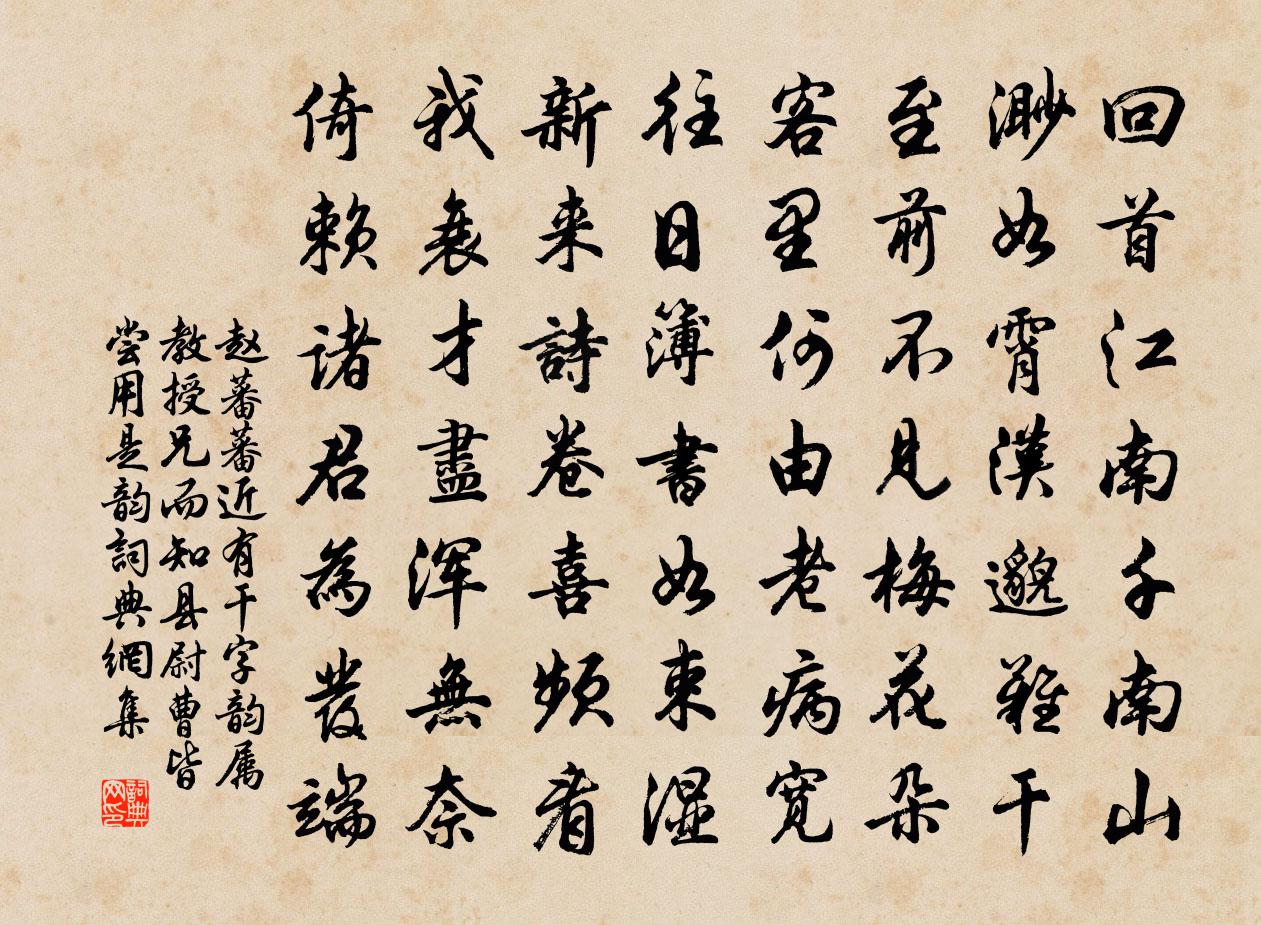 回首江南千南山
渺如霄漢邈難干
至前不見梅花朵
客里何由老病寬
往日簿書如束湿
新来詩卷喜频看
我衰才盡浑無奈
倚赖諸君為發端
赵蕃蕃近有干字韵属
教授兄而知县尉曹皆
尝用是韵詞典網集
詞典网印